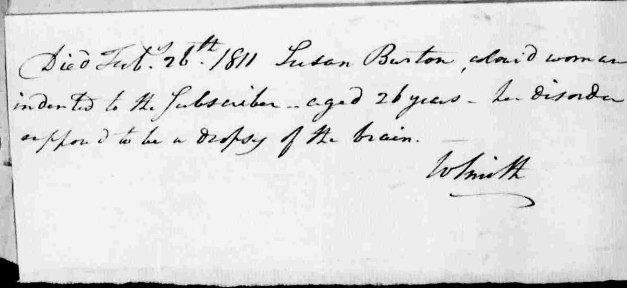 Died Feb.y 26th. 1811 Susan Burton, colour'd woman
indented to the Subscriber - aged 26 years - her disorder
suppos'd to be a dropsy of the brain.
W Smith